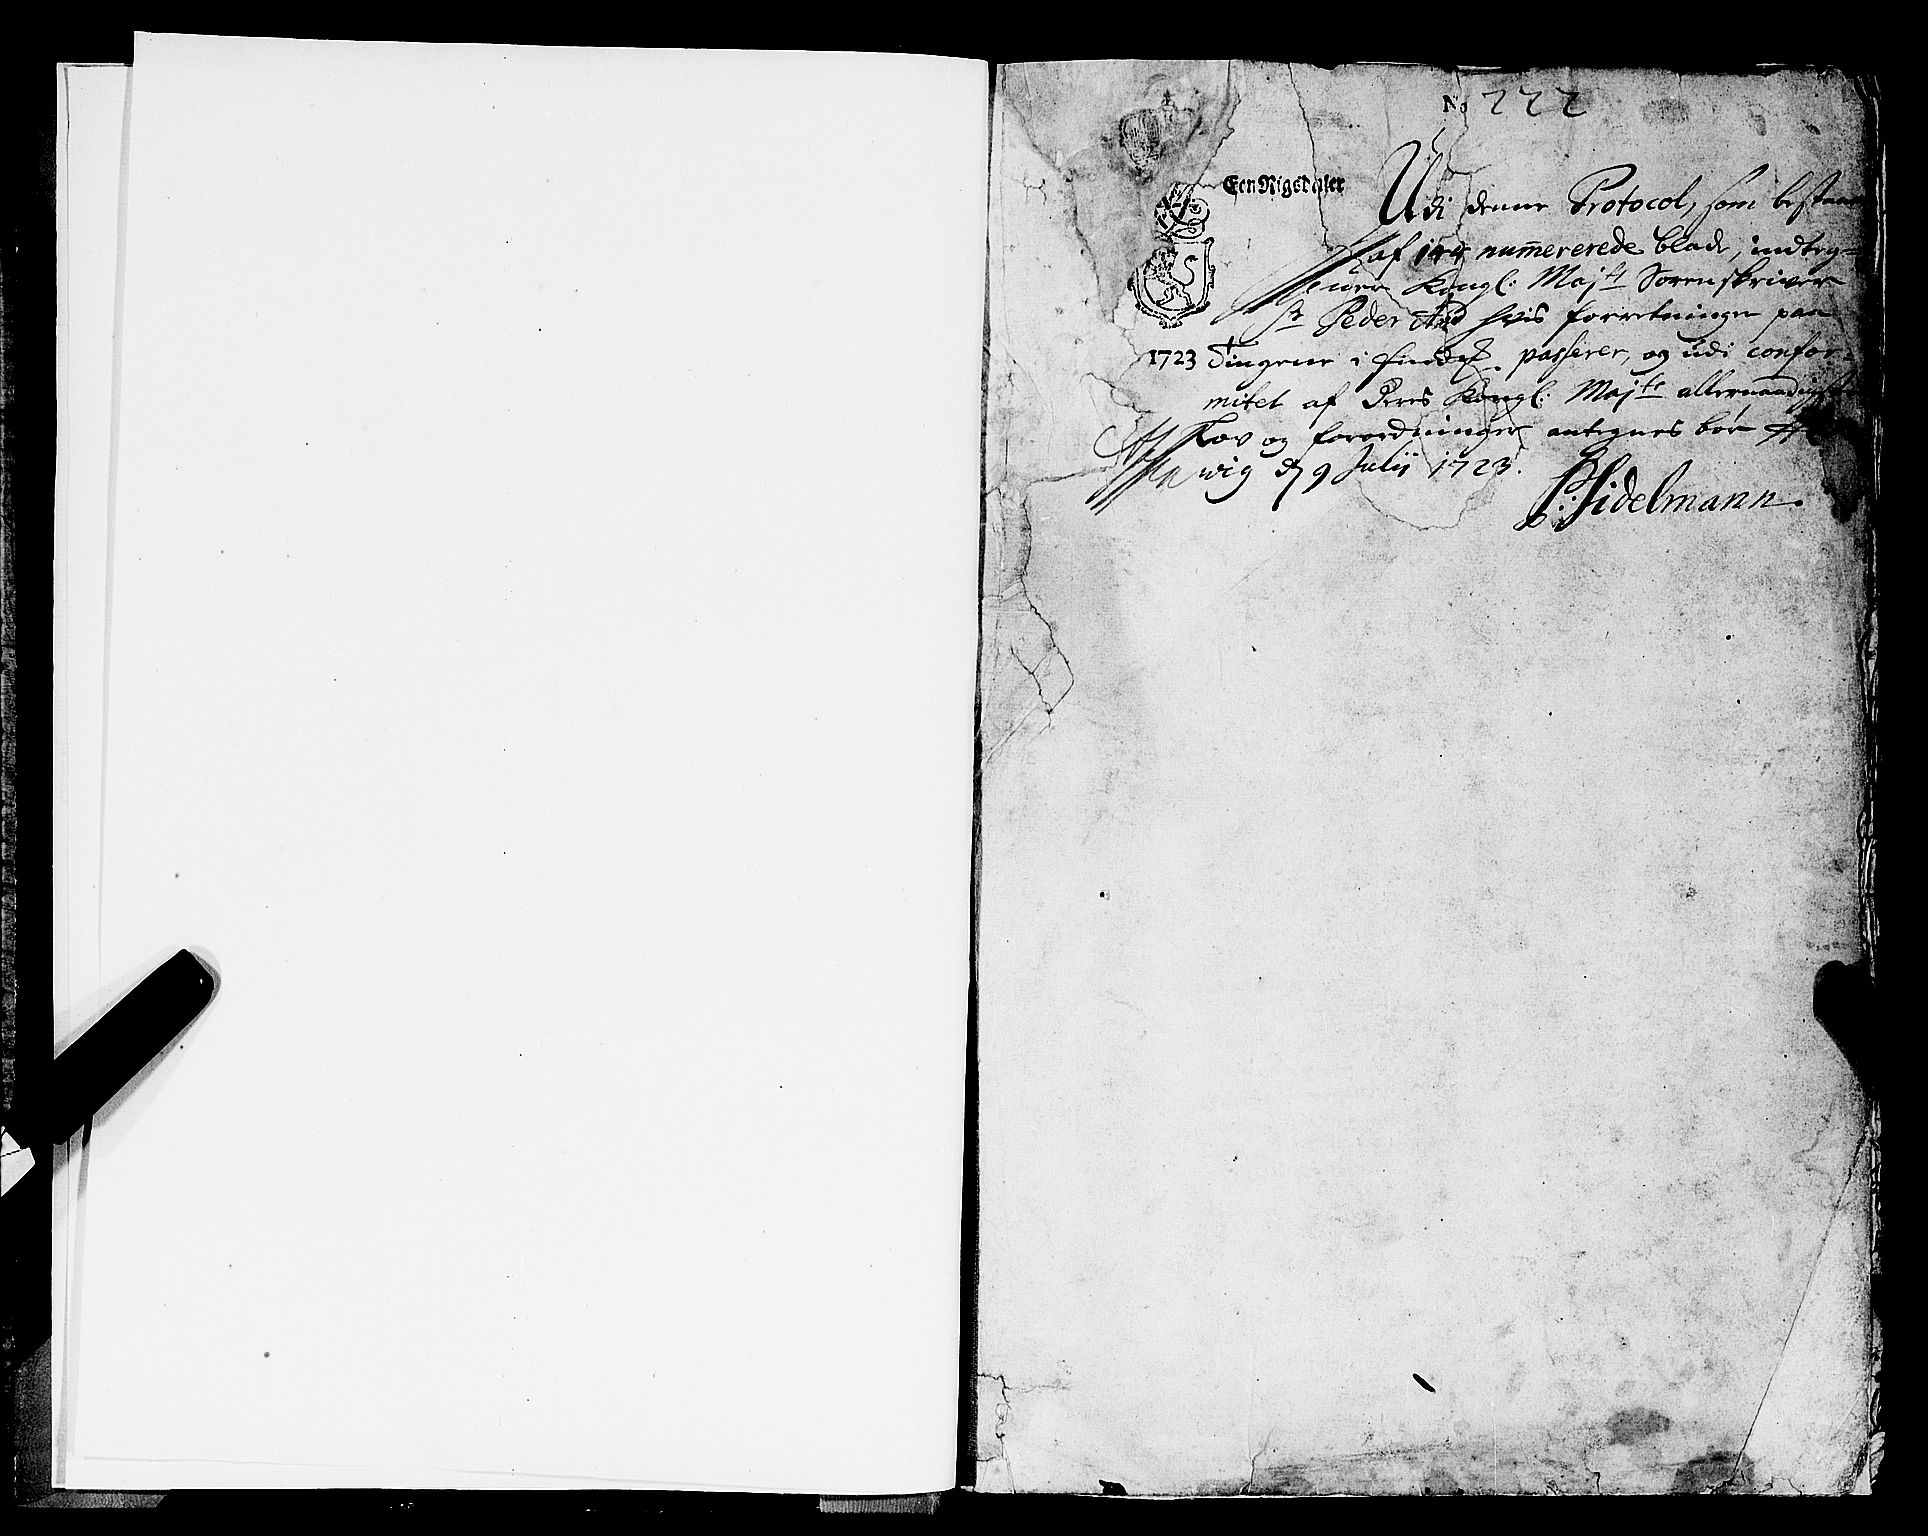 No 222
Een Rigsdaler
Udi denne Protocol, som bestaar
af 144 nummererede blade, indteg=
ner Kongl: Majts Sorenskriver
Sr Peder hvis forretninger paa
1723
Tingene i passerer, og udi confor=
mitet af Deres Kongl: Majts allernaadigste
Lov og forordninger antegnes bør
wig d 9 Julij 1723.
Sidelmann.